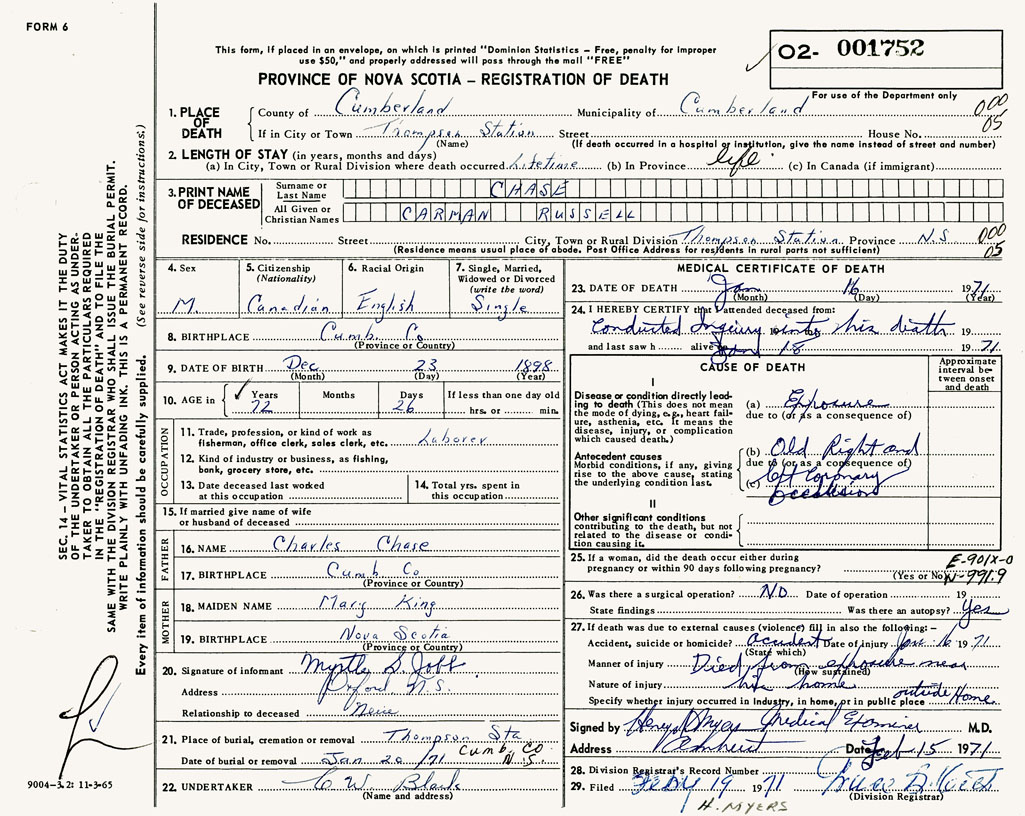 FORM 6
This form, if placed in an envelope, on which is printed "Dominion Statistics – Free, penalty for improper
use $50," and properly addressed will pass through the mail "FREE"
O2- 001752
PROVINCE OF NOVA SCOTIA – REGISTRATION OF DEATH
For use of the Department only
1. PLACE OF DEATH
County of Cumberland Municipality of Cumberland 000
If in City or Town Thompson Station Street House No. 05
(Name) (If death occurred in a hospital or institution, give the name instead of street and number)
2. LENGTH OF STAY (in years, months and days)
(a) In City, Town or Rural Division where death occurred Lifetime (b) In Province life (c) In Canada (if immigrant)
3. PRINT NAME OF DECEASED
Surname or Last Name CHASE
All Given or Christian Names CARMAN RUSSELL
RESIDENCE No. Street City, Town or Rural Division Thompson Station Province N.S 000
(Residence means usual place of abode. Post Office Address for residents in rural parts not sufficient) 05
4. Sex
M.
5. Citizenship
(Nationality)
Canadian
6. Racial Origin
English
7. Single, Married,
Widowed or Divorced
(write the word)
Single
8. BIRTHPLACE Cumb. Co
(Province or Country)
9. DATE OF BIRTH Dec 23 1898
(Month) (Day) (Year)
10. AGE in Years Months Days If less than one day old
72 26 hrs. or min.
OCCUPATION
11. Trade, profession, or kind of work as
fisherman, office clerk, sales clerk, etc. Laborer
12. Kind of industry or business, as fishing,
bank, grocery store, etc.
13. Date deceased last worked
at this occupation
14. Total yrs. spent in
this occupation
15. If married give name of wife
or husband of deceased
FATHER
16. NAME Charles Chase
17. BIRTHPLACE Cumb. Co
(Province or Country)
MOTHER
18. MAIDEN NAME Mary King
19. BIRTHPLACE Nova Scotia
(Province or Country)
20. Signature of informant Myrtle
Address Oxford N.S.
Relationship to deceased Neice
21. Place of burial, cremation or removal Thompson Sta
Cumb. Co.
Date of burial or removal Jan 20/71 N.S.
22. UNDERTAKER C W
(Name and address)
MEDICAL CERTIFICATE OF DEATH
23. DATE OF DEATH Jan 16 1971
(Month) (Day) (Year)
24. I HEREBY CERTIFY that I attended deceased from:
Conducted Inquiry into his death 19
and last saw h alive Jan 18 1971
CAUSE OF DEATH
Approximate
interval be-
tween onset
and death
I
Disease or condition directly lead-
ing to death (This does not mean
the mode of dying, e.g., heart fail-
ure, asthenia, etc. It means the
disease, injury, or complication
which caused death.)
(a) Exposure
due to (or as a consequence of)
Antecedent causes
Morbid conditions, if any, giving
rise to the above cause, stating
the underlying condition last.
(b) Old Right and
due to (or as a consequence of)
(c) left Coronary
occlusion
II
Other significant conditions
contributing to the death, but not
related to the disease or condi-
tion causing it.
25. If a woman, did the death occur either during
pregnancy or within 90 days following pregnancy?
(Yes or No)
E-901X-0
N-991.9
26. Was there a surgical operation? NO Date of operation 19
State findings Was there an autopsy? Yes
27. If death was due to external causes (violence) fill in also the following: –
Accident, suicide or homicide? accident Date of injury Jan 16 1971
(State which)
Manner of injury Died from exposure near
(How sustained)
Nature of injury his home
Specify whether injury occurred in industry, in home, or in public place outside Home
Signed by Medical Examiner M.D.
Address Amherst Date Feb 15 1971
28. Division Registrar's Record Number
29. Filed Feby 19 1971
(Division Registrar)
H. MYERS
SEC. 14 – VITAL STATISTICS ACT MAKES IT THE DUTY
OF THE UNDERTAKER OR PERSON ACTING AS UNDER-
TAKER TO OBTAIN ALL THE PARTICULARS REQUIRED
IN THE "REGISTRATION OF DEATH" AND TO FILE THE
SAME WITH THE DIVISION REGISTRAR WHO SHALL ISSUE THE BURIAL PERMIT.
WRITE PLAINLY WITH UNFADING INK. THIS IS A PERMANENT RECORD.
Every item of information should be carefully supplied. (See reverse side for instructions.)
9004-3.2: 11-3-65